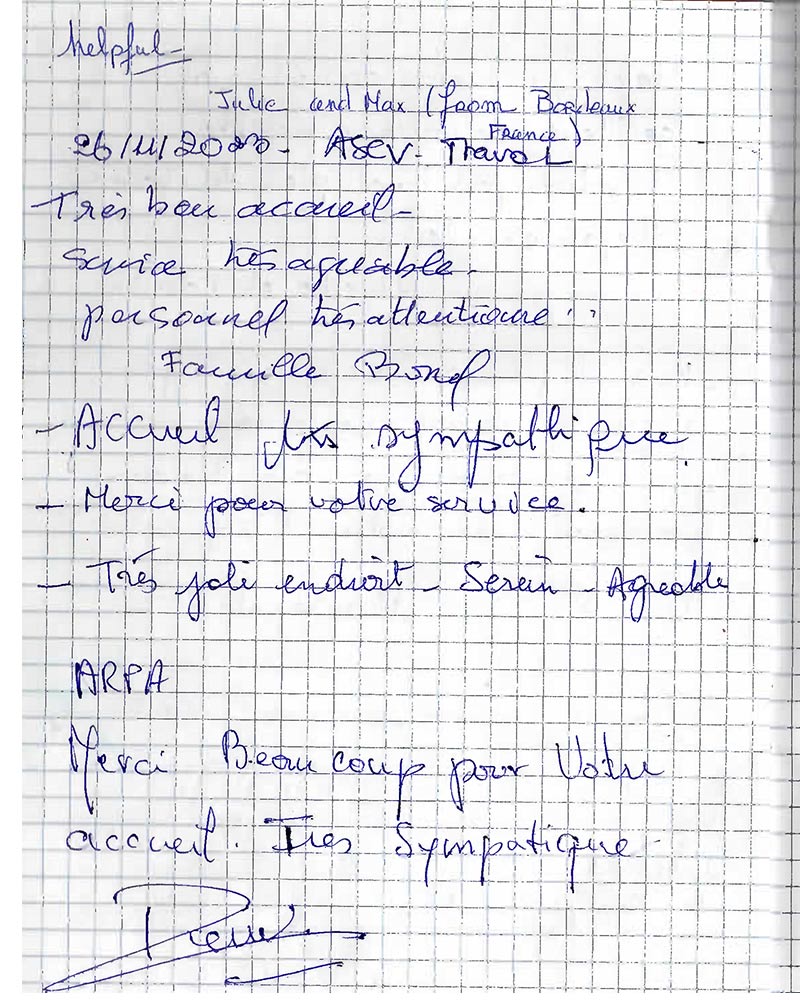 Helpful -
Julie and Max (from Bordeaux
France)
26/11/2023 - ASEV - Travel
- Très bon accueil -
Service très agréable -
personnel très attentionné
Famille Bond
- Accueil très sympathique.
- Merci pour votre service.
- Très joli endroit - Serein - Agreable
ARPA
Merci Beaucoup pour Votre
accueil. Tres Sympatique.